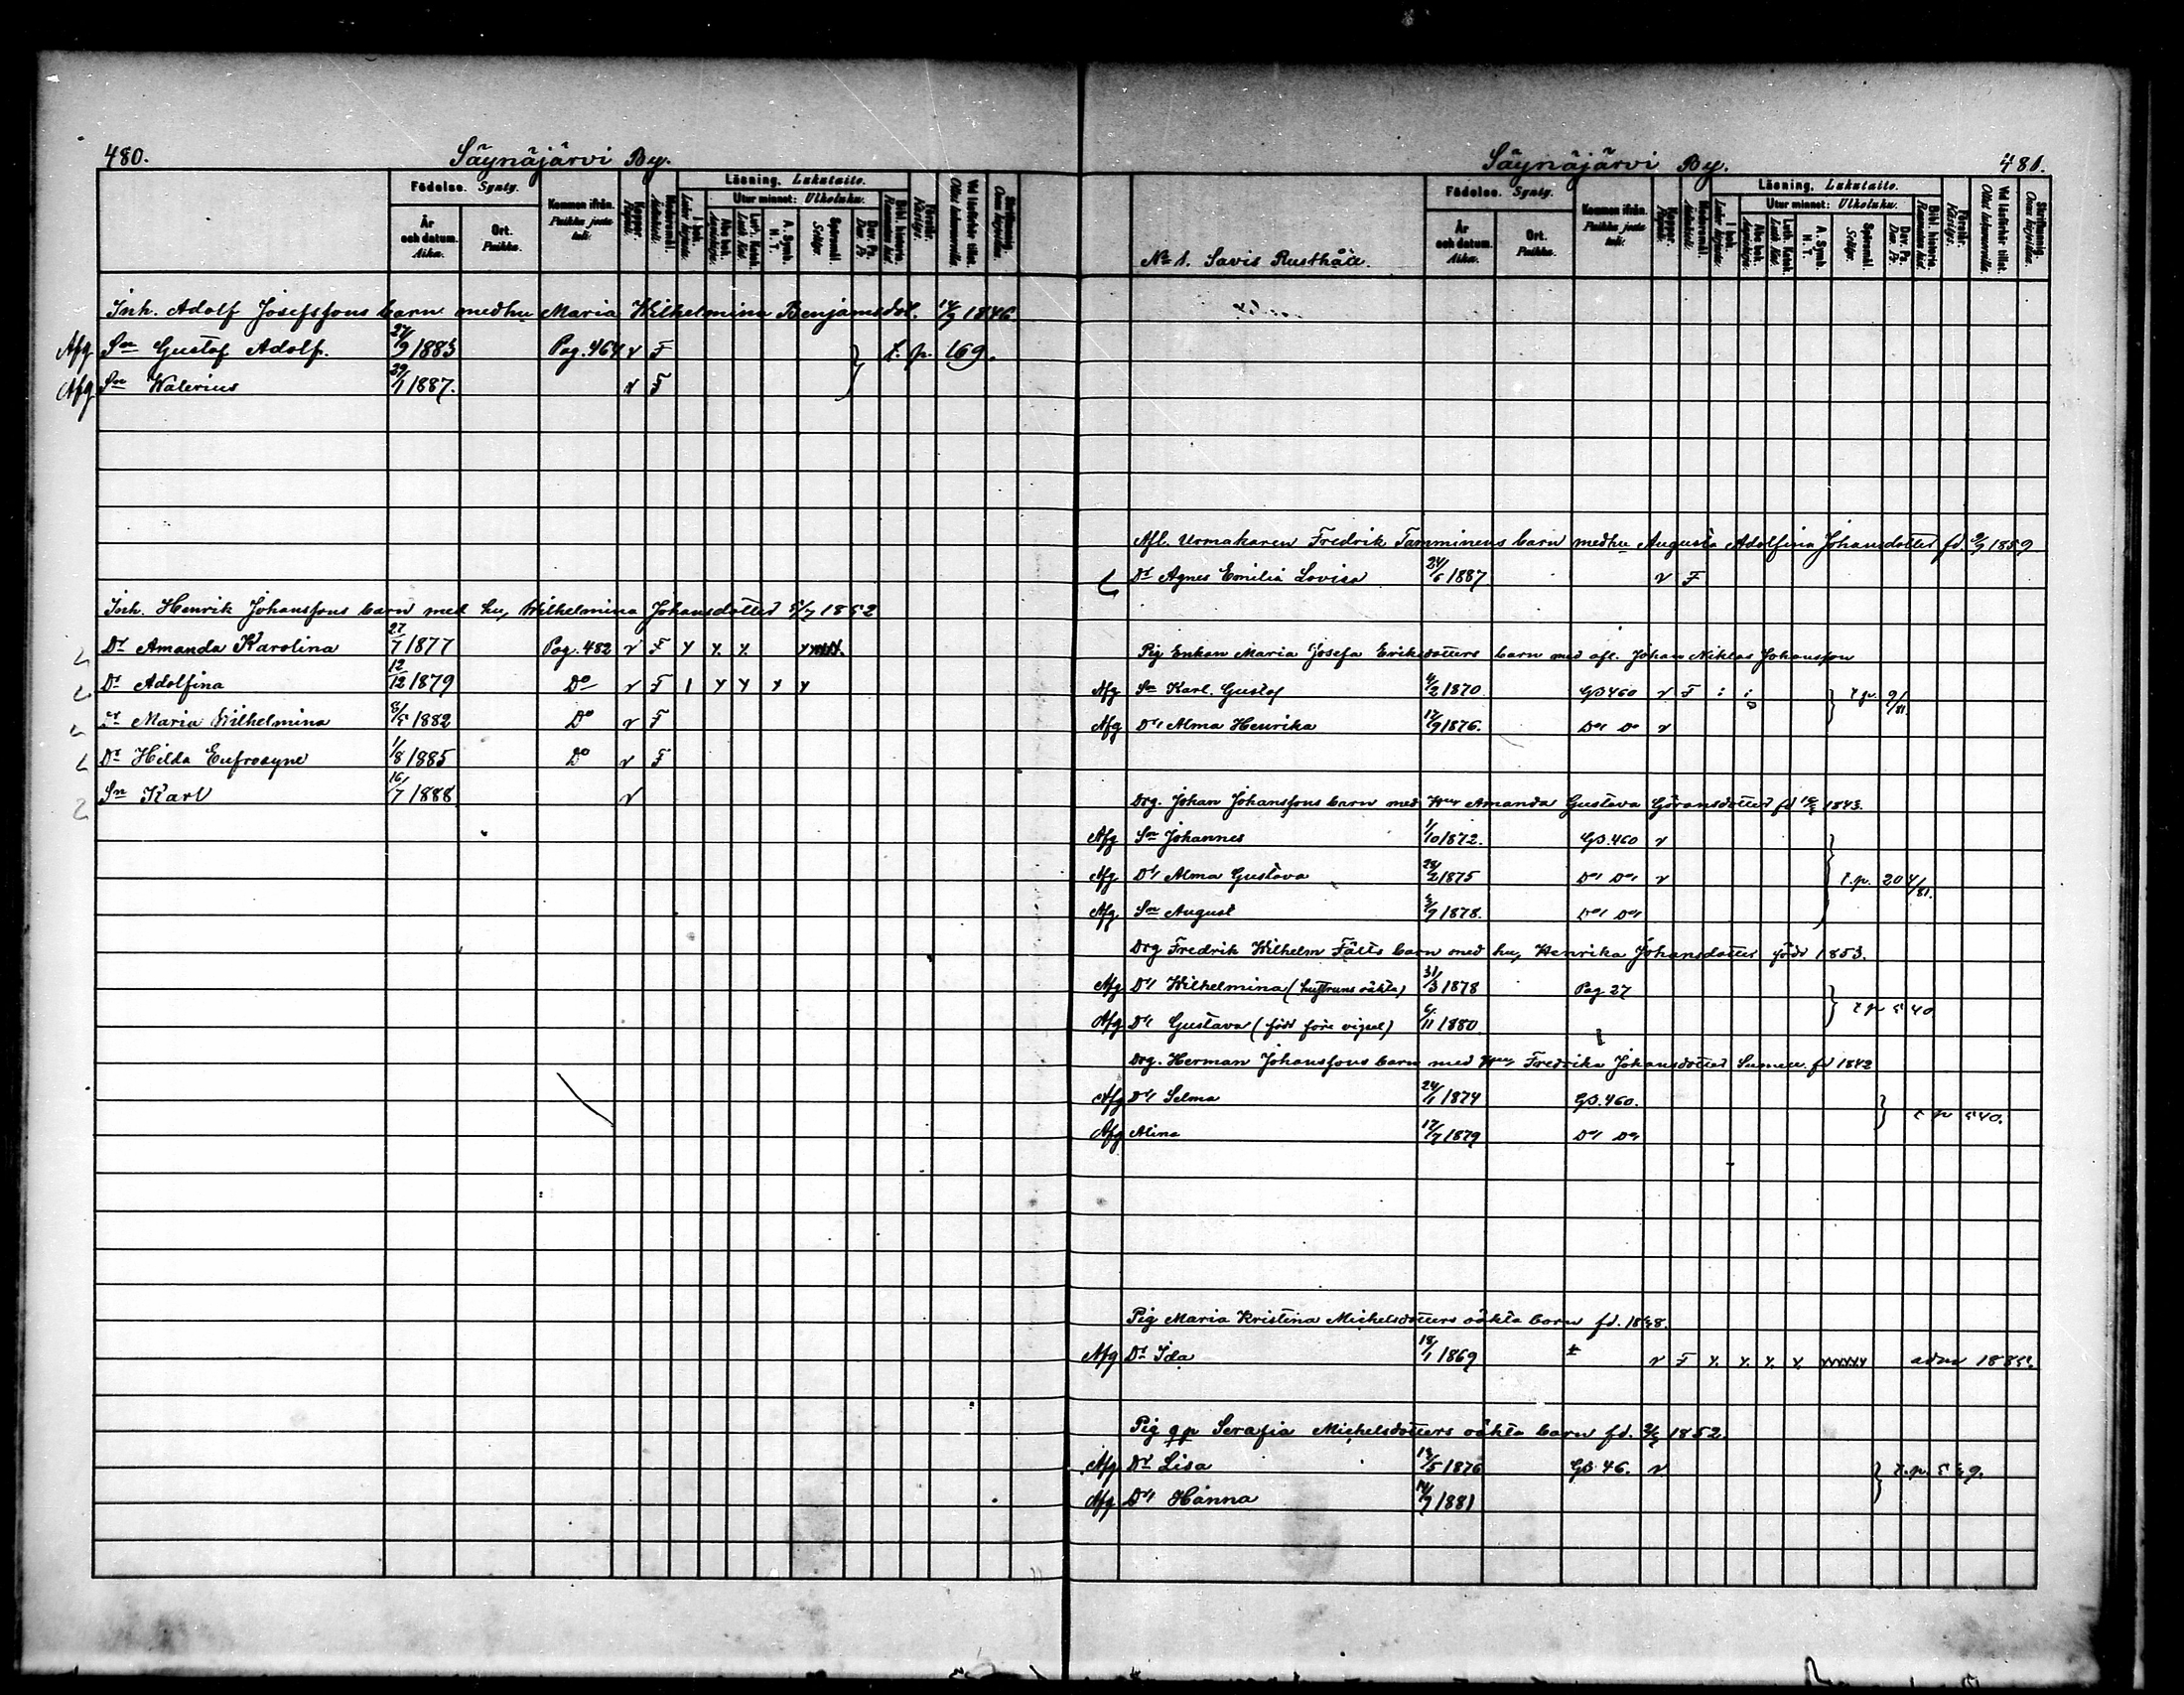 480.
Säynäjärvi By.
Födelse. Synty.
År och datum. Aika.
Ort. Paikka.
Kommen ifrån. Paikka josta tuli.
Koppor. Rupuli.
Läsning. Lukutaito.
Utur minnet: Ulkoluku.
Inh. Adolf Josefssons barn med hu Maria Wilhelmina Benjamsdot.
Afg Sn Gustaf Adolf. 27/9 1883 Pag. 464 v F } t. p. 169.
Afg Sn Walerius 29/1 1887. v F
Inh. Henrik Johanssons barn med hu, Wilhelmina Johansdotter 5/7 1852
Dr Amanda Karolina 27/7 1877 Pag. 482 v F
Dr Adolfina 12/12 1879 Do v F
Dr Maria Wilhelmina 8/5 1882 Do v F
Dr Hilda Eufrosyne 1/8 1885 Do v F
Sn Karl 16/7 1888 v
Säynäjärvi By.
481.
Födelse. Synty.
År och datum. Aika.
Ort. Paikka.
Kommen ifrån. Paikka josta tuli.
Läsning. Lukutaito.
Utur minnet: Ulkoluku.
No 1. Savis Rusthåll.
Afl. Urmakaren Fredrik Tamminens barn med hu Augusta Adolfina Johansdotter fd. 9/9 1859
Dr Agnes Emilia Lovisa 24/6 1887 v F
Pig Enkan Maria Josefa Eriksdotters barn med afl. Johan Niklas Johansson
Afg Sn Karl Gustaf 4/2 1870 GB 460 v F } t p. 9/81.
Afg Dr Alma Henrika 17/9 1876. Do Do v
Drg. Johan Johanssons barn med Hu Amanda Gustava Göransdotter fd 1843.
Afg Sn Johannes 1/10 1872. GB. 460 v
Afg Dr Alma Gustava 28/2 1875 Do Do v } t. p. 20 4/81.
Afg Sn August 1878. Do Do
Drg Fredrik Wilhelm Fälts barn med hu, Henrika Johansdotter född 1853.
Afg Dr Wilhelmina (hustruns oäkta) 31/3 1878 Pag 27
Afg Dr Gustava (född före vigsel) 6/11 1880 } t p 540
Drg. Herman Johanssons barn med Hu, Fredrika Johansdotter fd 1842
Afg Dr Selma 24/1 1874 GB. 460.
Afg Alina 17/7 1879 Do Do } t p 540.
Pig Maria Kristina Michelsdotters oäkta barn fd. 1848.
Afg Dr Ida 18/1 1869 v F adm 1885.
Pig Serafia Michelsdotters oäkta barn fd. 1852.
Afg Dr Lisa 13/5 1876 GB. 46. v } t. p. 549.
Afg Dr Hanna 14/9 1881